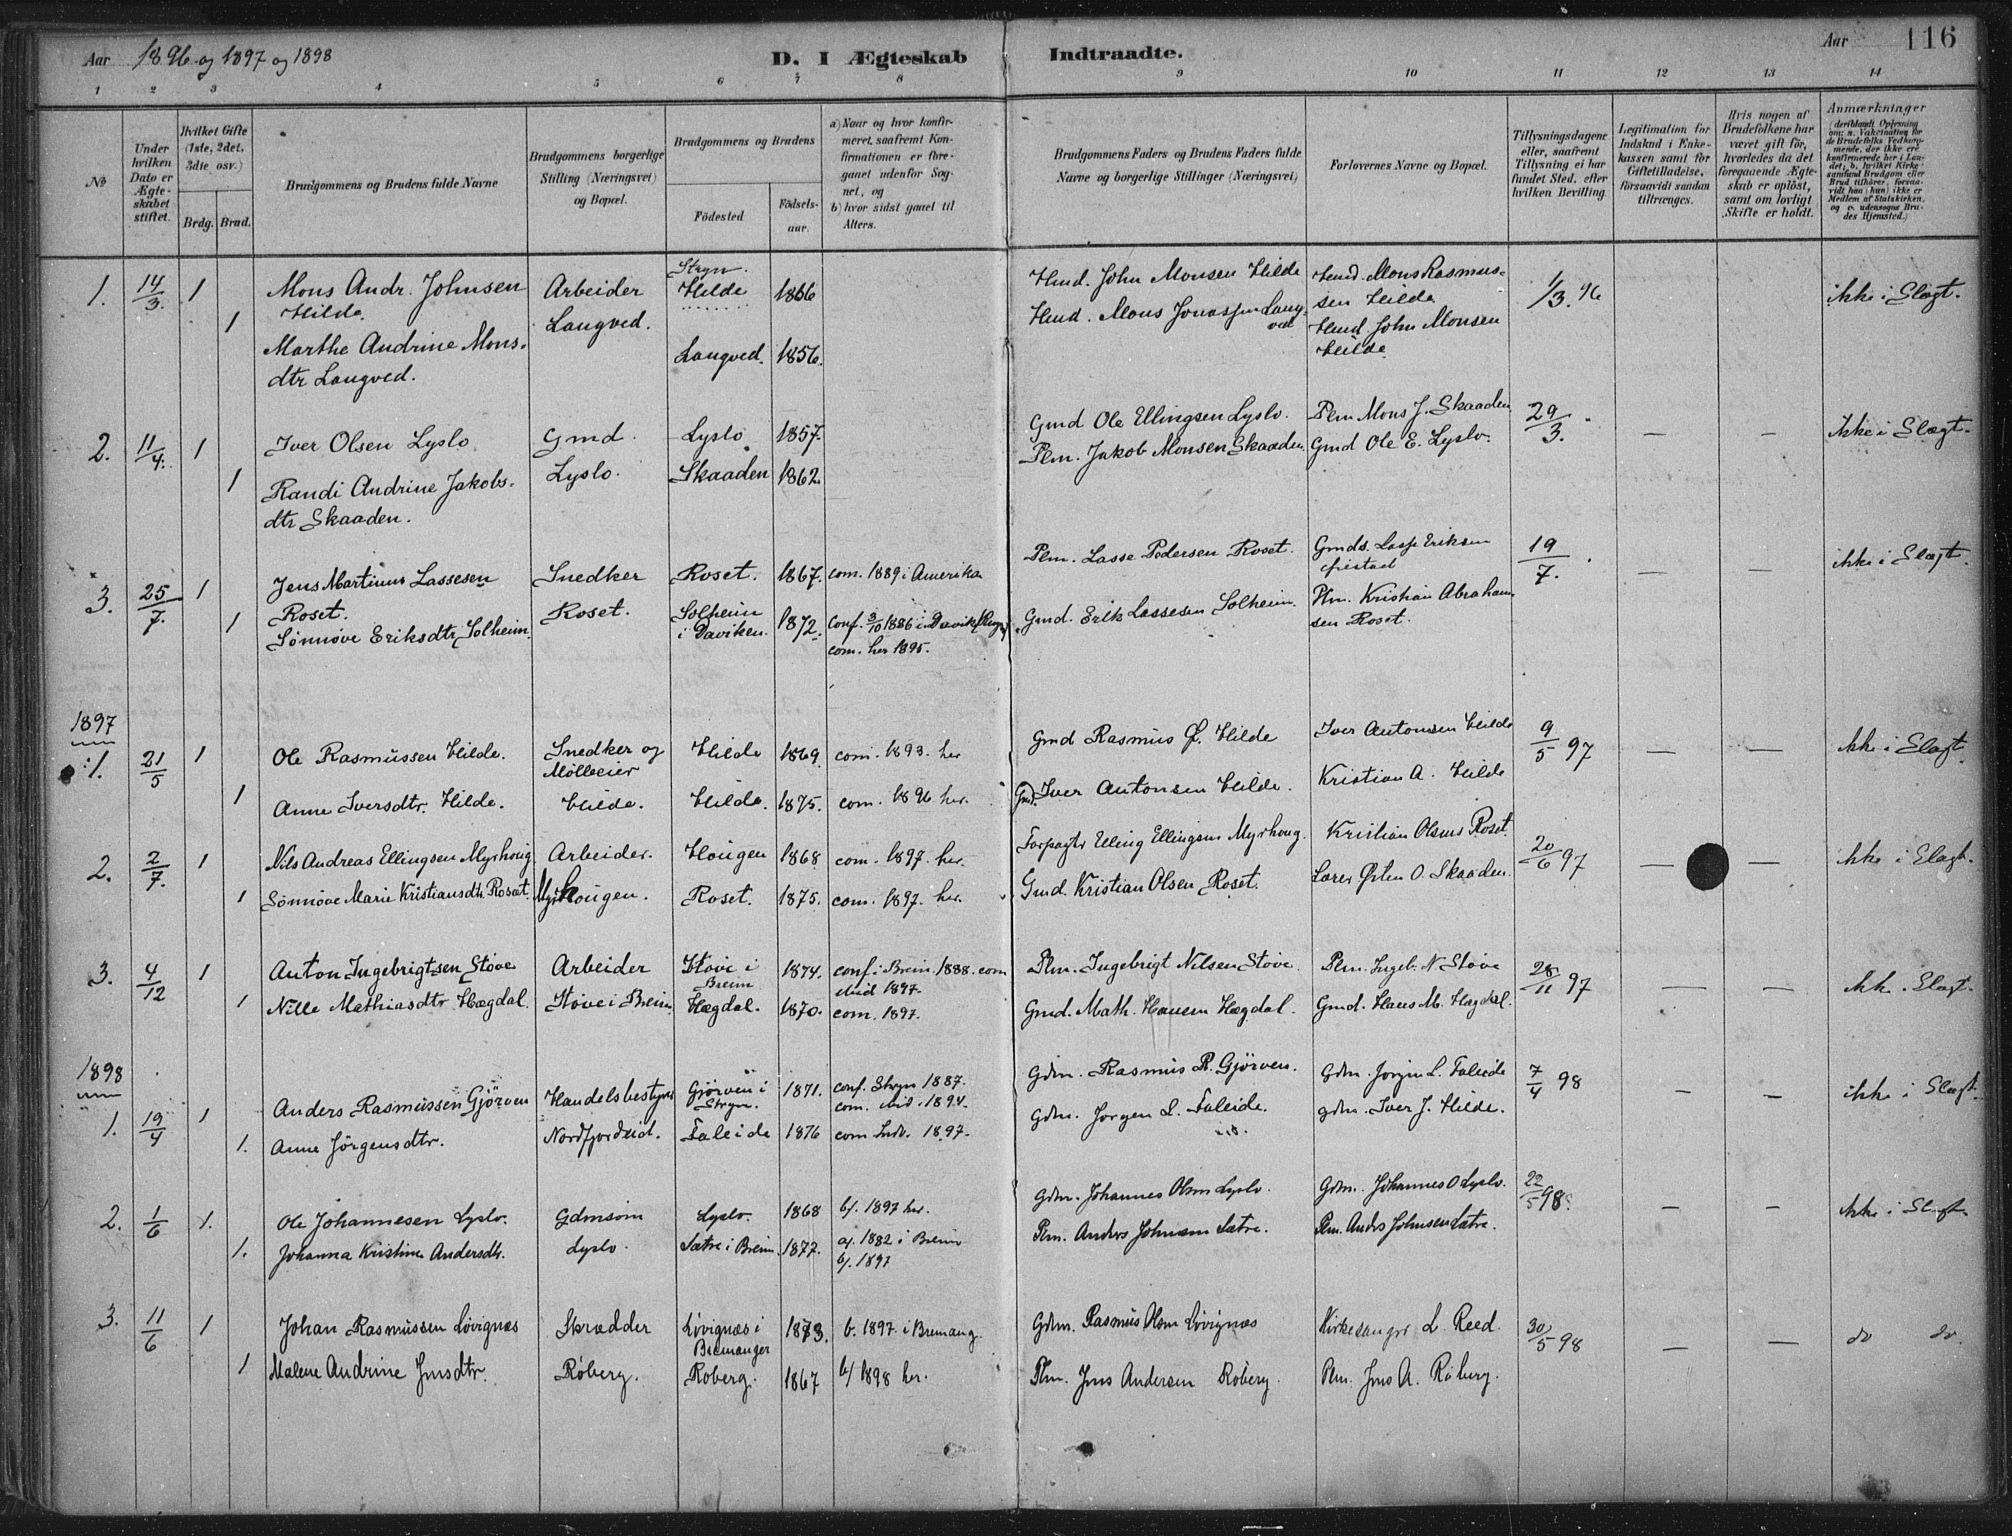 Aar 1896 og 1897 og 1898
D. I Ægteskab Indtraadte.
Aar 116
1 2 3 4 5 6 7 8 9 10 11 12 13 14
No
Under hvilken Dato er Ægteskabet stiftet.
Hvilket Gifte (1ste, 2det, 3die, osv.)
Brdg. Brud.
Brudgommens og Brudens fulde Navne
Brudgommens borgerlige Stilling (Næringsvei) og Bopæl.
Brudgommens og Brudens
Födested
Födsels-aar.
a) Naar og hvor konfirmeret, saafremt Konfirmationen er foregaaet udenfor Sognet, og
b) hvor sidst gaaet til Alters.
Brudgommens Faders og Brudens Faders fulde Navne og borgerlige Stillinger (Næringsvei)
Forlovernes Navne og Bopæl.
Tillysningsdagene eller, saafremt Tillysning ei har fundet Sted, efter hvilken Bevilling.
Legitimation for Indskud i Enkekassen samt for Giftetilladelse, försaavidt saadan tiltrænges.
Hvis nogen af Brudefolkene har været gift för, hvorledes da det foregaaende Ægteskab er oplöst, samt om lovligt Skifte er holdt.
Anmærkninger
(deriblandt Oplysning om: a. Vakcination for de Brudefolks Vedkommende, der ikke ere konfirmerede her i Landet; b. hvilket Kirkesamfund Brudgom eller Brud tilhörer, forsaavidt han (hun) ikke er Medlem af Statskirken, og c. udensogns Brudes Hjemsted.)
1. 14/3. 1 Mons Andr. Johnsen Hilde. Arbeider Stryn. Hilde 1866 Hmd. John Monsen Hilde Hmd. Mons Rasmussen Hilde 1/3. 96 ikke i Slægt.
1 Marthe Andrine Monsdtr Langved. Langved. Langved. 1856. Hmd. Mons Langved Hmd. John Monsen Hilde
2. 11/4. 1 Iver Olsen Lyslo Gmd. Lyslo 1857. Gmd Ole Ellingsen Lyslo. Plm Mons J. Skaaden 29/3. — — Ikke i Slægt.
1 Randi Andrine Jakobsdtr Skaaden. Lyslo. Skaaden 1862. Plm. Jakob Monsen Skaaden. Gmd Ole E. Lyslo.
3. 25/7. 1 Jens Martinus Lassesen Roset. Snedker Roset. 1867. com. 1889 i Amerika Plm. Lasse Pedersen Roset. Gmds. Eriksen 19/7. ikke i Slægt.
1 Sønnøve Eriksdtr Solheim. Roset. Solheim i Daviken. 1872. conf. 3/10 1886 i Davik
com. her 1895. Gmd. Erik Lassesen Solheim. Hm. Kristian Abrahamsen Roset.
1897
1. 21/5 1 Ole Rasmussen Hilde. Snedker og Hilde 1869. com. 1893. her Gmd Rasmus Ø. Hilde Iver Antonsen Hilde 9/5 97 — — ikke i Slægt.
1 Anne Iversdtr. Hilde. Hilde. Hilde. 1875. com. 1896 her. Gmd. Iver Antonsen Hilde. Kristian A. Hilde
2. 2/7. 1 Nils Andreas Ellingsen Myrhoug. Arbeider. Hougen 1868 com. 1897. her. Forpagter Elling Ellingsen Myrhoug. Kristian Olsens Roset. 20/6 97 — — ikke i Slægt.
1 Sønnøve Marie Kristiansdtr. Roset. Myrhougen. Roset. 1875. com. 1897. her. Gmd. Kristian Olsen Roset. Lærer Østen O. Skaaden.
3. 4/12 1 Anton Ingebrigtsen Støve Arbeider Støve i Breim 1874. conf. i Breim. 1888. com
ibid 1897. Plm. Ingebrigt Nilsen Støve. Plm. Ingeb. N Støve 28/11 97 — — ikke i Slægt.
1 Nille Mathiasdtr Hægdal. Støve i Breim Hægdal. 1870. com. 1897. Gmd. Math. Hansen Hægdal. Gmd. Hans M. Hægdal.
1898
1. 19/4 1 Anders Rasmussen Gjörven Handelsbestyrer Gjörven i Stryn. 1871. conf. Stryn 1887.
com. ibid. 1894. Gdm. Rasmus R. Gjörven. Gdm. Jörgen L. Faleide 7/4 98 — — ikke i Slægt.
1. Anne Jörgensdtr. Nordfjordeid. Faleide 1876 com Indv. 1897. Gdm. Jörgen L. Faleide. Gdm. Iver J. Hilde.
2. 1/6 1. Ole Johannesen Lyslo. Gdmsøn Lyslo. 1868 b/. 1897 her. Gdm. Johannes Olsen Lyslo. Gdm. Johannes O Lyslo. 22/5 98 — — ikke i Slægt.
1. Johanna Kristine Andersdtr. Lyslo. Sætre i Breim 1877. a/. 1882 i Breim
b/. 1897 Plm. Anders Johnsen Sætre. Plm. Anders Johnsen Sætre.
3. 11/6 1 Johan Rasmussen Lövignæs Skrædder Lövignæs i Bremanger 1873. b. 1897 i Bremang. Gdm. Rasmus Olsen Lövignæs Kirkesanger L. Reed. 30/5 98 — — do do.
1 Malene Andrine Jensdtr. Röberg. Röberg. 1867 b/ 1898 her. Plm. Jens Andersen Röberg. Plm. Jens A. Röberg.